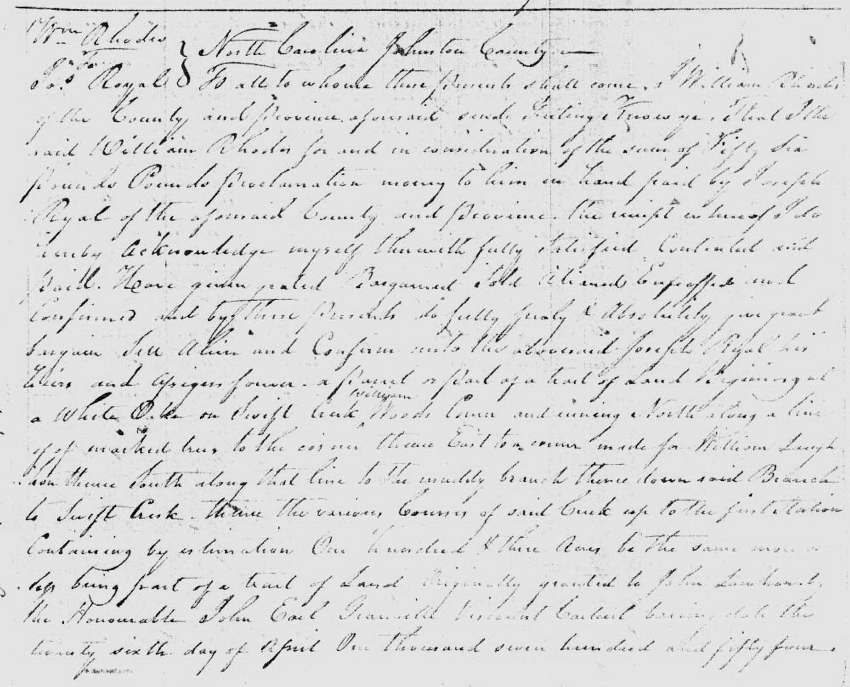 Wm Rhodes
To
Jos Royal } North Carolina Johnston County
To all to whome these presents shall come, I William Rhodes
of the County and Province aforesaid send Greeting Know ye, that I the
said William Rhodes for and in consideration of the sum of Fifty Six
Pounds Pounds Proclamation money to him in hand paid by Joseph
Royal of the aforesaid County and Province. the receipt whereof I do
hereby Acknowledge myself therewith fully Satisfied Contented and
paid. Have given granted Bargained Sold Aliened Enfeoffed and
Confirmed and by these Presents do fully freely & Absolutely give grant
bargain Sell Alien and Confirm unto the abovesaid Joseph Royal his
Heirs and Assigns forever. a Parcel or Part of a tract of Land Beginning at
a White Oak on Swift Creek William Woods Corner and runing North along a line
of of marked trees to the corner thence East to a corner made for William
thence South along that line to the muddy branch thence down said Branch
to Swift Creek. thence the various Courses of said Creek up to the first station
Containing by estimation One hundred & three Acres be the same more or
less being part of a tract of Land Originally granted to John
the Honourable John Earl Granville Viscount Carteret bearing date the
twenty sixth day of April One thousand seven hundred and fifty four.